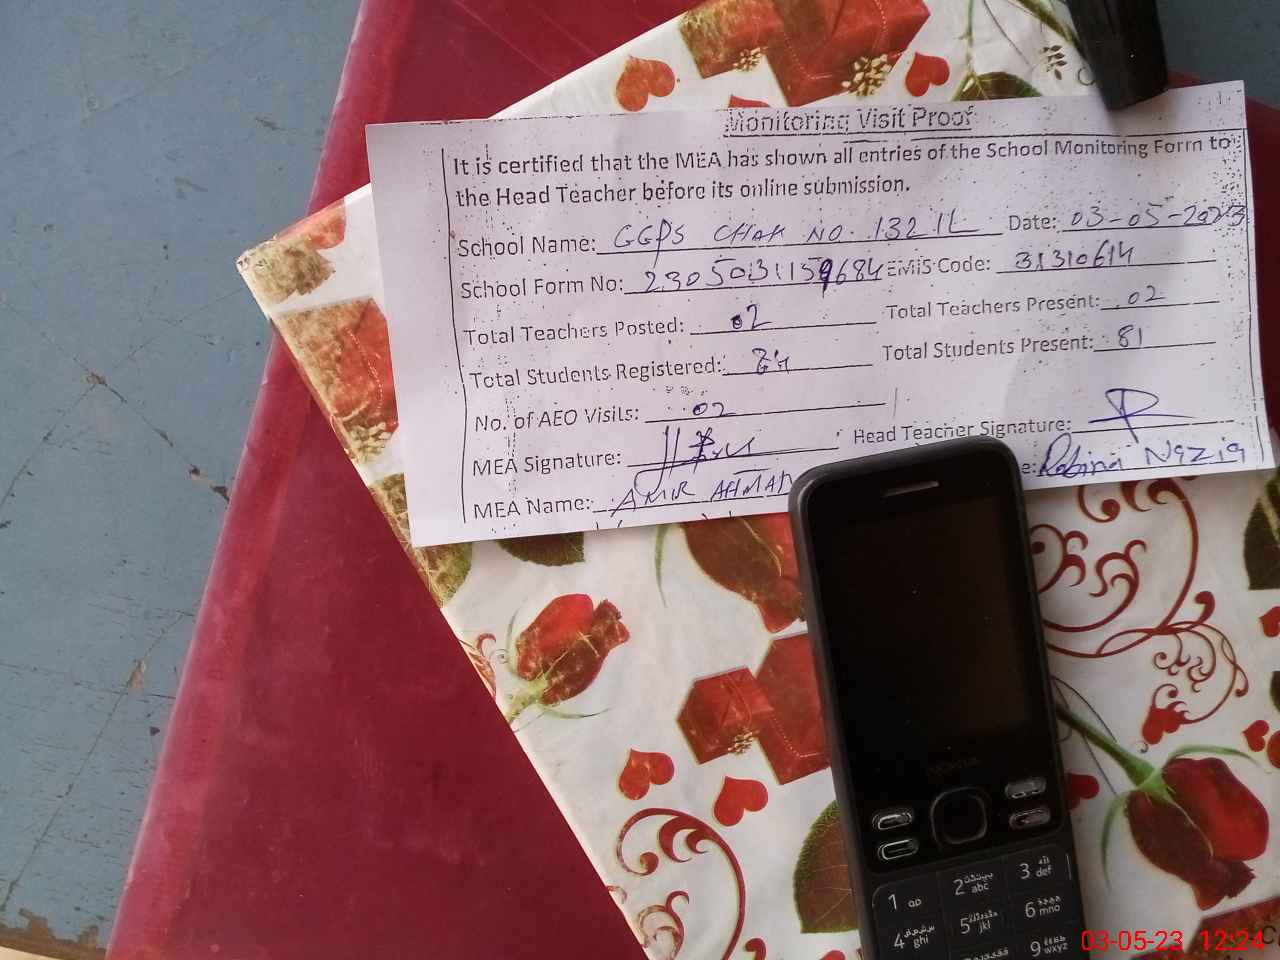 Monitoring Visit Proof
It is certified that the MEA has shown all entries of the School Monitoring Form to
the Head Teacher before its online submission.
School Name: GGPS CHAK NO. 132 1L Date: 03-05-2023
School Form No: 2305031159684 EMIS Code: 31310614
Total Teachers Posted: 02 Total Teachers Present: 02
Total Students Registered: Total Students Present: 81
No. of AEO Visits: 02
MEA Signature: Head Teacher Signature:
MEA Name: AMIR AHMAD e: Robina Nazia
NOKIA
1
2 abc
3 def
4 ghi
5 jkl
6 mno
9 wxyz
03-05-23 12:24